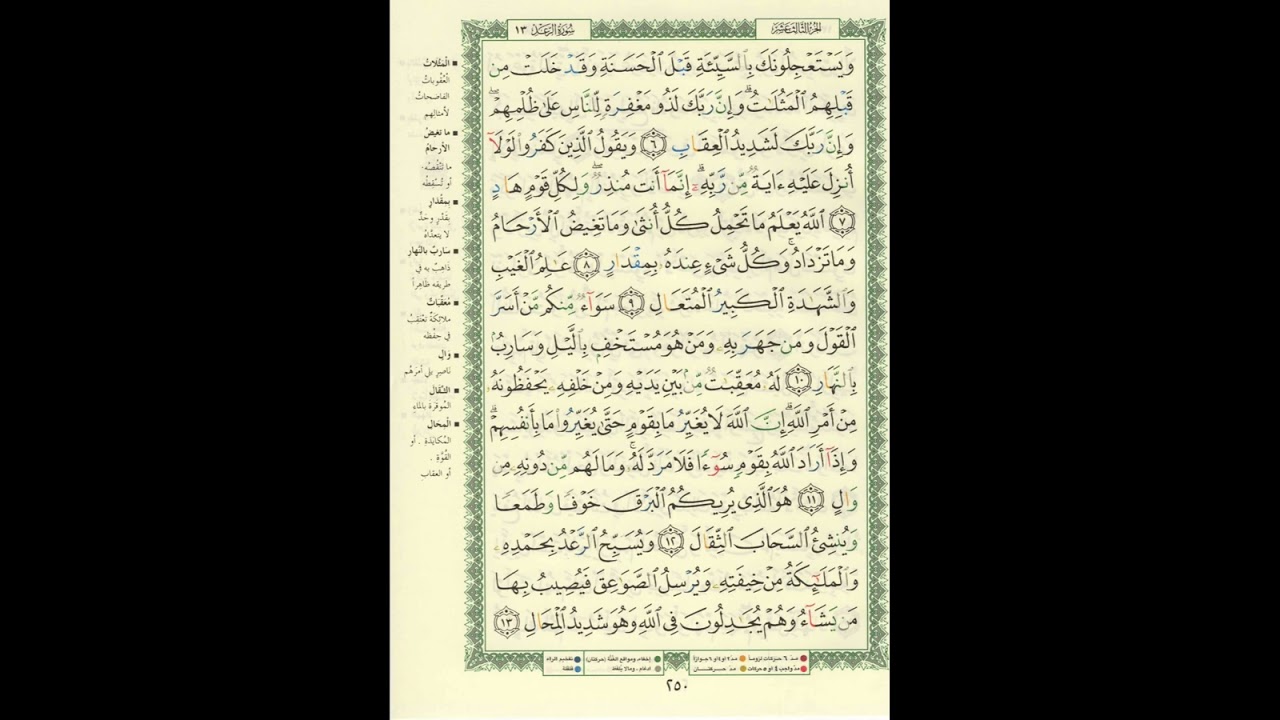 الجزء الثالث عشر
سورة الرعد ١٣
وَيَسْتَعْجِلُونَكَ بِٱلسَّيِّئَةِ قَبْلَ ٱلْحَسَنَةِ وَقَدْ خَلَتْ مِن
قَبْلِهِمُ ٱلْمَثُلَٰتُ ۗ وَإِنَّ رَبَّكَ لَذُو مَغْفِرَةٍ لِّلنَّاسِ عَلَىٰ ظُلْمِهِمْ ۖ
وَإِنَّ رَبَّكَ لَشَدِيدُ ٱلْعِقَابِ ٦ وَيَقُولُ ٱلَّذِينَ كَفَرُوا۟ لَوْلَآ
أُنزِلَ عَلَيْهِ ءَايَةٌ مِّن رَّبِّهِۦٓ ۗ إِنَّمَآ أَنتَ مُنذِرٌ ۖ وَلِكُلِّ قَوْمٍ هَادٍ
٧ ٱللَّهُ يَعْلَمُ مَا تَحْمِلُ كُلُّ أُنثَىٰ وَمَا تَغِيضُ ٱلْأَرْحَامُ
وَمَا تَزْدَادُ ۖ وَكُلُّ شَىْءٍ عِندَهُۥ بِمِقْدَارٍ ٨ عَٰلِمُ ٱلْغَيْبِ
وَٱلشَّهَٰدَةِ ٱلْكَبِيرُ ٱلْمُتَعَالِ ٩ سَوَآءٌ مِّنكُم مَّنْ أَسَرَّ
ٱلْقَوْلَ وَمَن جَهَرَ بِهِۦ وَمَنْ هُوَ مُسْتَخْفٍۭ بِٱلَّيْلِ وَسَارِبٌۢ
بِٱلنَّهَارِ ١٠ لَهُۥ مُعَقِّبَٰتٌ مِّنۢ بَيْنِ يَدَيْهِ وَمِنْ خَلْفِهِۦ يَحْفَظُونَهُۥ
مِنْ أَمْرِ ٱللَّهِ ۗ إِنَّ ٱللَّهَ لَا يُغَيِّرُ مَا بِقَوْمٍ حَتَّىٰ يُغَيِّرُوا۟ مَا بِأَنفُسِهِمْ ۗ
وَإِذَآ أَرَادَ ٱللَّهُ بِقَوْمٍ سُوٓءًا فَلَا مَرَدَّ لَهُۥ ۚ وَمَا لَهُم مِّن دُونِهِۦ مِن
وَالٍ ١١ هُوَ ٱلَّذِى يُرِيكُمُ ٱلْبَرْقَ خَوْفًا وَطَمَعًا
وَيُنشِئُ ٱلسَّحَابَ ٱلثِّقَالَ ١٢ وَيُسَبِّحُ ٱلرَّعْدُ بِحَمْدِهِۦ
وَٱلْمَلَٰٓئِكَةُ مِنْ خِيفَتِهِۦ وَيُرْسِلُ ٱلصَّوَٰعِقَ فَيُصِيبُ بِهَا
مَن يَشَآءُ وَهُمْ يُجَٰدِلُونَ فِى ٱللَّهِ وَهُوَ شَدِيدُ ٱلْمِحَالِ ١٣
■ المَثُلاتُ
العُقوباتُ
الفاضحاتُ
لأمثالهم
■ ما تَغيضُ
الأرحامُ
ما تَنْقُصُه
أو تُسْقِطُه
■ بمقدارٍ
بقدرٍ وحدٍّ
لا يتعدّاهُ
■ ساربٌ بالنّهار
ذاهبٌ به في
طريقه ظاهراً
■ مُعَقِّباتٌ
ملائكةٌ تعتقبُ
في حِفْظه
■ والٍ
ناصرٍ يلي أمرَهُم
■ الثِّقالَ
المُوقَرةَ بالماءِ
■ المِحالِ
المُكايدةِ . أو
القُوَّةِ .
أو العِقاب
مد ٦ حركات لزوماً
مد ٢ أو ٤ أو ٦ جوازاً
مد واجب ٤ أو ٥ حركات
مد حركتان
إخفاء، ومواقع الغنة (حركتان)
ادغام، وما لا يلفظ
تفخيم الراء
قلقلة
٢٥٠